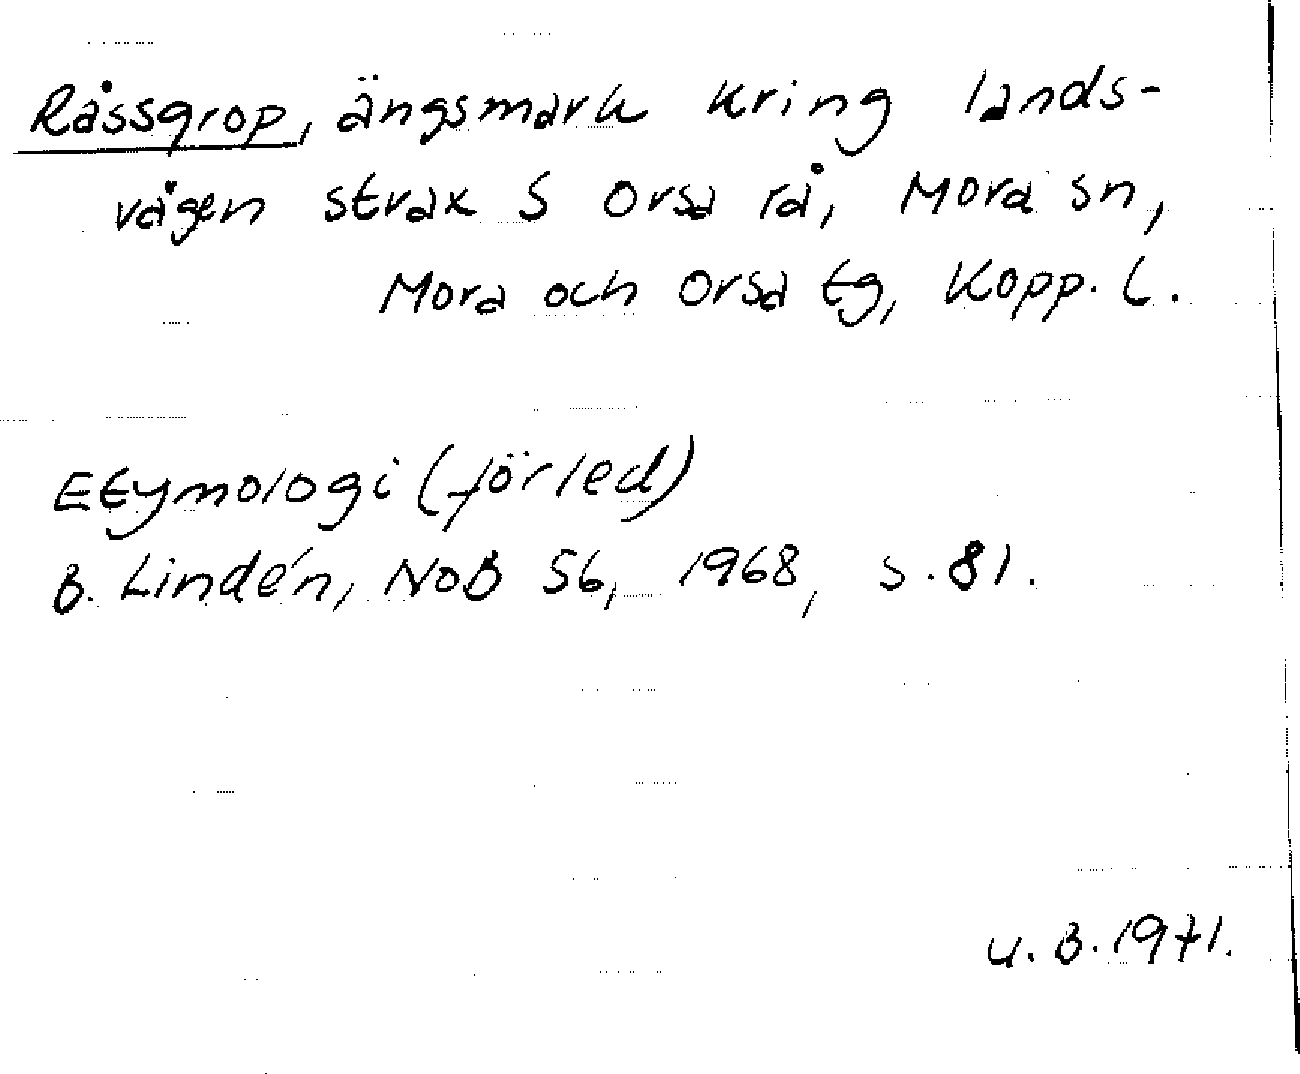 Råssgrop, ängsmark kring lands-
vägen strax S Orsa rå, Mora sn,
Mora och Orsa tg, Kopp. l.
Etymologi (förled)
B. Lindén, NoB 56, 1968, s. 81.
U. B. 1971.